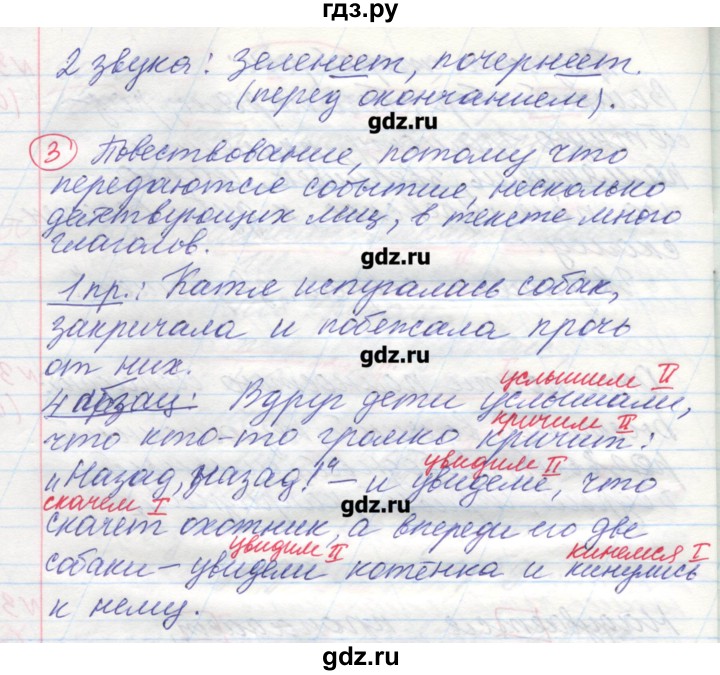 гдз.ру
2 звука: зеленеет, почернеет.
(перед окончанием).
gdz.ru
3 Повествование, потому что
передаются события, несколько
действующих лиц, в тексте много
глаголов.
gdz.ru
1 пр.: Катя испугалась собак,
закричала и побежала прочь
от них.
gdz.ru
услышим II
4 абзац: Вдруг дети услышали,
кричим II
что кто-то громко кричит:
увидим II
„Назад, назад!“ – и увидели, что
скачем I
gdz.ru
скачет охотник, а впереди его две
увидим II кинемся I
собаки – увидели котёнка и кинулись
к нему.
gdz.ru
gdz.ru